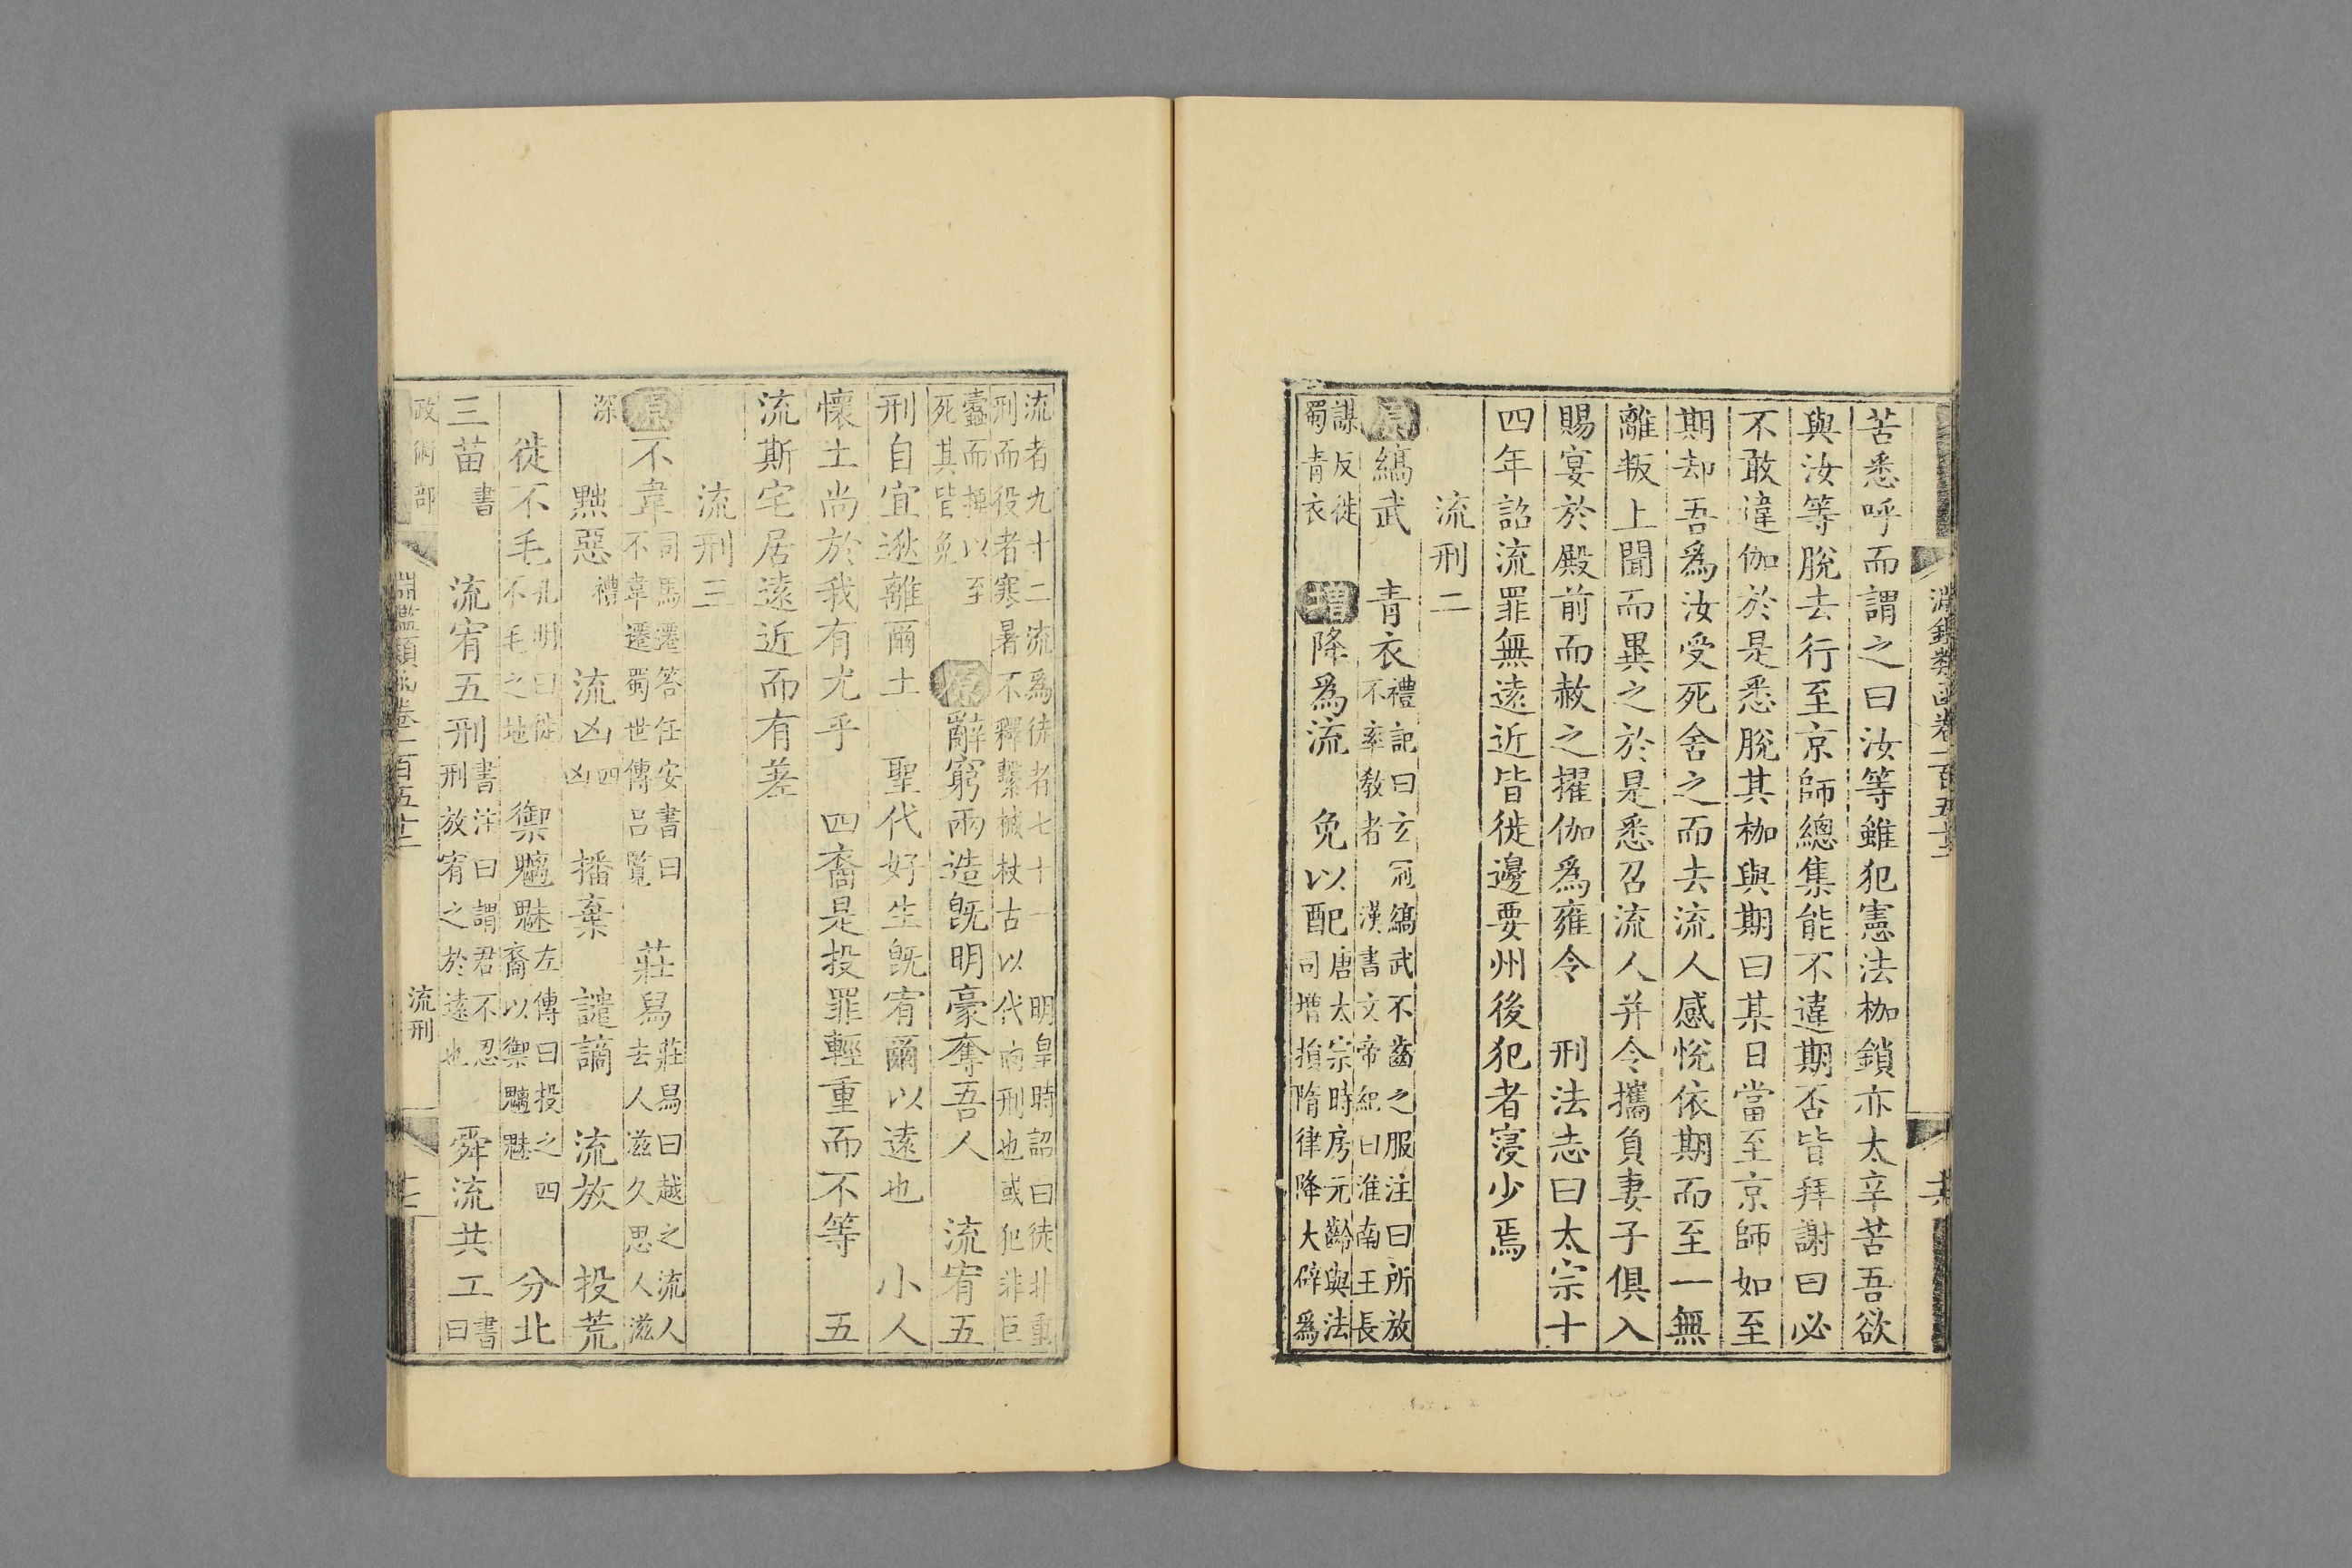 苦悉呼而謂之曰汝等雖犯憲法枷鎖亦太辛苦吾欲
與汝等脫去行至京師總集能不違期否皆拜謝曰必
不敢違伽於是悉脫其枷與期曰某日當至京師如至
期却吾爲汝受死舍之而去流人感悅依期而至一無
離叛上聞而異之於是悉召流人并令攜負妻子俱入
賜宴於殿前而赦之擢伽爲雍令　刑法志曰太宗十
四年詔流罪無遠近皆徙邊要州後犯者寖少焉
流刑二
原縞武　青衣禮記曰玄冠縞武不齒之服注曰所放不率教者　漢書文帝紀曰淮南王長
謀反徙蜀青衣　增降爲流　免以配唐太宗時房元齡與法司增損隋律降大辟爲
流者九十二流爲徒者七十一　明皇時詔曰徒非重刑而役者寒暑不釋繫械杖古以代肉刑也或犯非巨
蠹而捶以至死其皆免　原辭窮兩造旣明豪奪吾人　流宥五
刑自宜逖離爾土　聖代好生旣宥爾以遠也　小人
懷土尚於我有尤乎　四裔是投罪輕重而不等　五
流斯宅居遠近而有差
流刑三
原不韋司馬遷答任安書曰不韋遷蜀世傳呂覽　莊舄莊舄曰越之流人去人滋久思人滋
深　黜惡禮　流凶四凶　播棄　譴謫　流放　投荒
徙不毛孔明曰徙不毛之地　禦魑魅左傳曰投之四裔以禦魑魅　分北
三苗書　流宥五刑書注曰謂君不忍刑放宥之於遠也　舜流共工書曰
政術部　淵鑑類函卷一百五十二　流刑